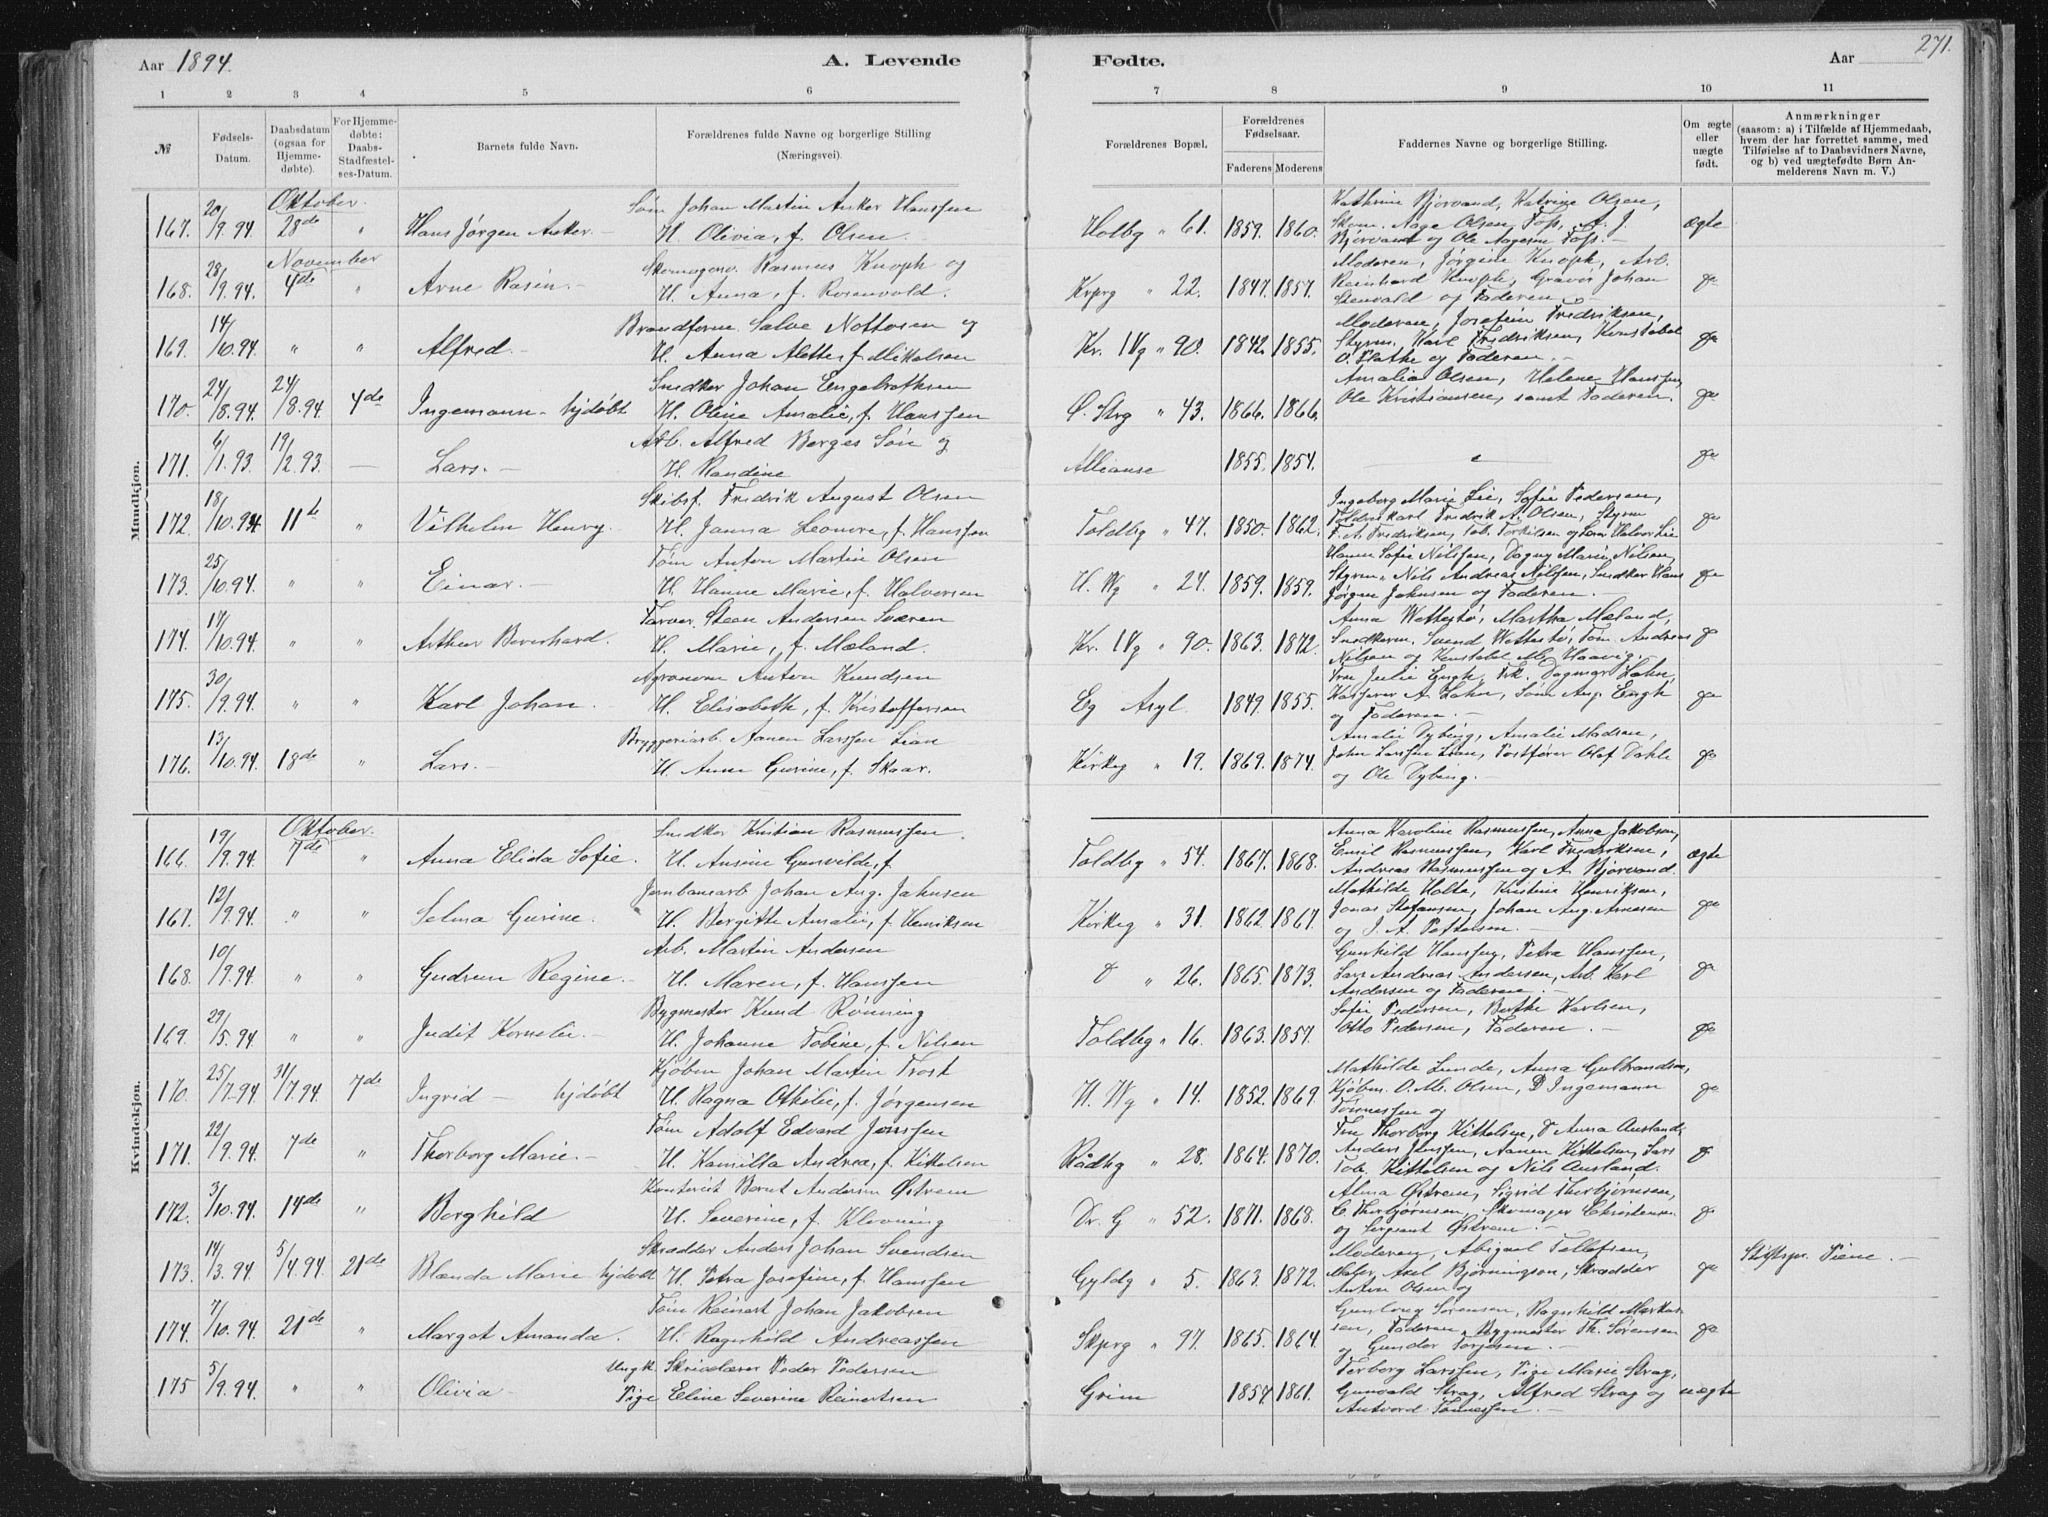 Aar 1894.
A. Levende
Fødte.
Aar
271.
1 2 3 4 5 6 7 8 9 10 11
№
Fødsels-Datum.
Daabsdatum (ogsaa for Hjemme-døbte).
For Hjemme-døbte: Daabs-Stadfæstel-ses-Datum.
Barnets fulde Navn.
Forældrenes fulde Navne og borgerlige Stilling (Næringsvei).
Forældrenes Bopæl.
Forældrenes Fødselsaar.
Faderens Moderens
Faddernes Navne og borgerlige Stilling.
Om ægte eller uægte født.
Anmærkninger
(saasom: a) i Tilfælde af Hjemmedaab, hvem der har forrettet samme, med Tilføielse af to Daabsvidners Navne, og b) ved uægtefødte Børn An-melderens Navn m. V.)
Mandkjøn.
Oktober.
167. 20/9.94. 28de " Hans Jørgen Anker -
Søm Johan Martin Anker Hanssen
H. Olivia, f. Olsen -
Holbg " 61. 1859. 1860.
Kathrine Bjorvand, Katrine Olsen,
Skom. Aage Olsen, Foss, A. J.
Bjorvand og Ole Aagesen Foss. -
ægte
November
168. 28/9.94. 4de " Arne Rosin. -
Skomagersv. Rasmus Knoph og
H. Anna, f. Rosenvold.
Krprg " 22. 1847. 1857.
Moderen, Jørgine Knoph, Arb.
Reinhard Knoph, Gravør Johan
Stenvald og Faderen -
do
169. 14/10.94. " " Alfred. -
Brandform. Salve Nottosen og
H. Anna Alette, f. Mikalsen
Kr. IVg " 90. 1842. 1855.
Moderen, Josefin Fredriksen,
Styrm. Karl Fredriksen, Konstabel
O. Flathe og Faderen. -
do
170. 24/8.94. 24/8.94. 4de Ingemann - hjdøbt
Snedker Johan Engelbrethsen
H. Oline Amalie, f. Hanssen
Ø. Strg " 43. 1866. 1866.
Amalia Olsen, Helene Hanssen,
Ole Kristiansen, samt Faderen.
do
171. 6/1.93. 19/2.93. — Lars. -
Arb. Alfred Borges Søn og
H. Randine
Alliance 1855. 1854.
do
172. 18/10.94 11te " Vilhelm Henry.
Skibsf. Fredrik August Olsen
H. Janna Leonore, f. Hanssen
Toldbg " 47. 1850. 1862.
Ingeborg Marie Lie, Sofie Pedersen,
Toldviskarl Fredrik A. Olsen, Styrm
F. A. Fredriksen, Tob. Torkilsen og Halvor Lie
do
173. 25/10.94. " " Einar. -
Tøm. Anton Martin Olsen
H. Hanne Marie, f. Halvorsen
H. Wg " 24. 1859. 1859.
Hanne Sofie Nilssen, Dagny Marie Nilsen,
Styrm. Nils Andreas Nilssen, Snedker Hans
Jørgen Johnsen og Faderen. -
do
174. 17/10.94. " " Arthur Bernhard.
Farver Steen Andersen Sværen
H. Marie, f. Mæland.
Kr. IVg " 90. 1863. 1872.
Anna Wettestø, Martha Mæland,
Snedkerm. Svend Wettestø, Tøm. Andreas
Nilsen og Konstabel M. Haavig.
do
175. 30/9.94. " " Karl Johan.
Agronom Anton Knudsen
H. Elisabeth, f. Kristoffersen
Eg Asyl. 1849. 1855.
Fru Julie Engh, Frk. Dagmar Lahn,
Kasserer A. Lahn, Søm. Aug. Engh
og Faderen. -
do
176. 13/10.94. 18de " Lars. -
Bryggeriarb. Aanen Larssen Lian
H. Anne Gurine, f. Skaar.
Kirkeg " 19. 1869. 1874.
Amalie Dybing, Amalie Madsen,
John Larssen Lian, Postfører Olaf Dahle
og Ole Dybing. -
do
Kvindekjøn.
Oktober.
166. 19/9.94. 7de " Anna Elida Sofie.
Snedker Kristian Rasmussen.
H. Ansine Gunvilde, f.
Toldbg " 54. 1867. 1868.
Anna Karoline Rasmussen, Anna Jakobsen,
Emil Rasmussen, Karl Fredriksen,
Andreas Rasmussen og A. Bjorvand.
ægte
167. 12/9.94. " " Selma Gurine.
Jernbanearb Johan Aug. Johnsen
H. Bergitte Amalie, f. Henriksen
Kirkeg " 31. 1862. 1867.
Mathilde Holte, Kristine Henriksen,
Jonas Stefansen, Johan Aug. Arnesen
og J. A. Pettersen. -
do
168. 10/9.94. " " Gudrun Regine. -
Arb. Martin Andersen
H. Maren, f. Hanssen
do " 26. 1865. 1873.
Gunhild Hanssen, Petra Hanssen,
Lars Andreas Andersen, Arb. Karl
Andersen og Faderen. -
do
169. 29/5.94. " " Judit Kornelie. -
Bygmester Knud Rønning
H. Johanne Tobine, f. Nilsen
Toldbg " 16. 1863. 1857.
Sofie Pedersen, Berthe Karlsen,
Otto Pedersen, Faderen. -
do
170. 25/7.94 31/7.94 7de Ingrid - hjdøbt
Kjøbm Johan Martin Trost
H. Ragna Othilie, f. Jørgensen
H. Wg " 14. 1852. 1869.
Mathilde Lunde, Anna Gulbrandsen,
Kjøbm. O. M. Olsen, D Ingemann
Tønnessen og
do
171. 22/9.94. 7de " Thorborg Marie. -
Tøm Adolf Edvard Jenssen
H. Kamilla Andrea, f. Kittelsen
Rådhg " 28. 1864. 1870.
Fru Thorborg Kittelsen, do Anna Ausland,
Anders Jenssen, Aanen Kittelsen, Lars
Tob. Kittelsen og Nils Ausland.
do
172. 3/10.94. 14de " Borghild
Kontorist Bernt Andersen Østrem
H. Severine, f. Klevning
Dr. G " 52. 1871. 1868.
Alma Østrem, Sigrid Thorbjørnsen,
C. Thorbjørnsen, Skomager Christensen
og Sergeant Østrem. -
do
173. 14/3.94. 5/4.94. 21de Blanda Marie hjdøbt
Skrædder Anders Johan Svendsen
H. Petra Josefine, f. Hanssen
Gyldg " 5. 1863. 1872.
Moderen, Abigael Tellefsen,
Maler Axel Bjørningson, Skrædder
Anton Olsen og
do
Stiftspr. Piene. -
174. 7/10.94. 21de " Margot Amanda.
Tøm Reinert Johan Jakobsen
H. Ragnhild Andreassen
Skprg " 97. 1865. 1864.
Gunborg Sørensen, Ragnhild Markus-
sen, Faderen, Bygmester Th. Sørensen
og Gunder Torjesen. -
do
175 5/9.94. " " Olivia -
Ungk. Skrædder Peder Pedersen
Pige Eline Severine Reinertsen
Grim 1854. 1861.
Terborg Larssen, Pige Marie Strag,
Gunvald Strag, Alfred Strag og
Antvord Tønnessen. -
uægte